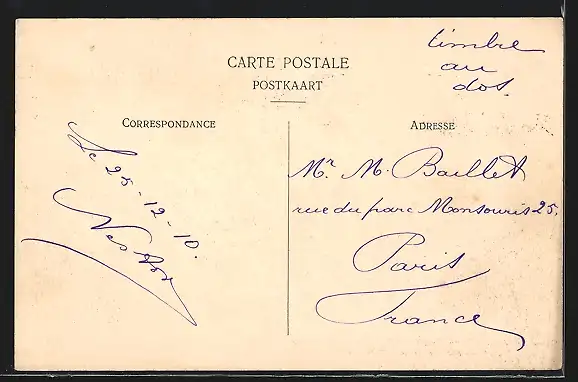 timbre
au
dos
CARTE POSTALE
POSTKAART
CORRESPONDANCE
ADRESSE
Le 25-12-10.
Nestor
Mr. M. Baillet
rue du parc Monsouris 25.
Paris
France